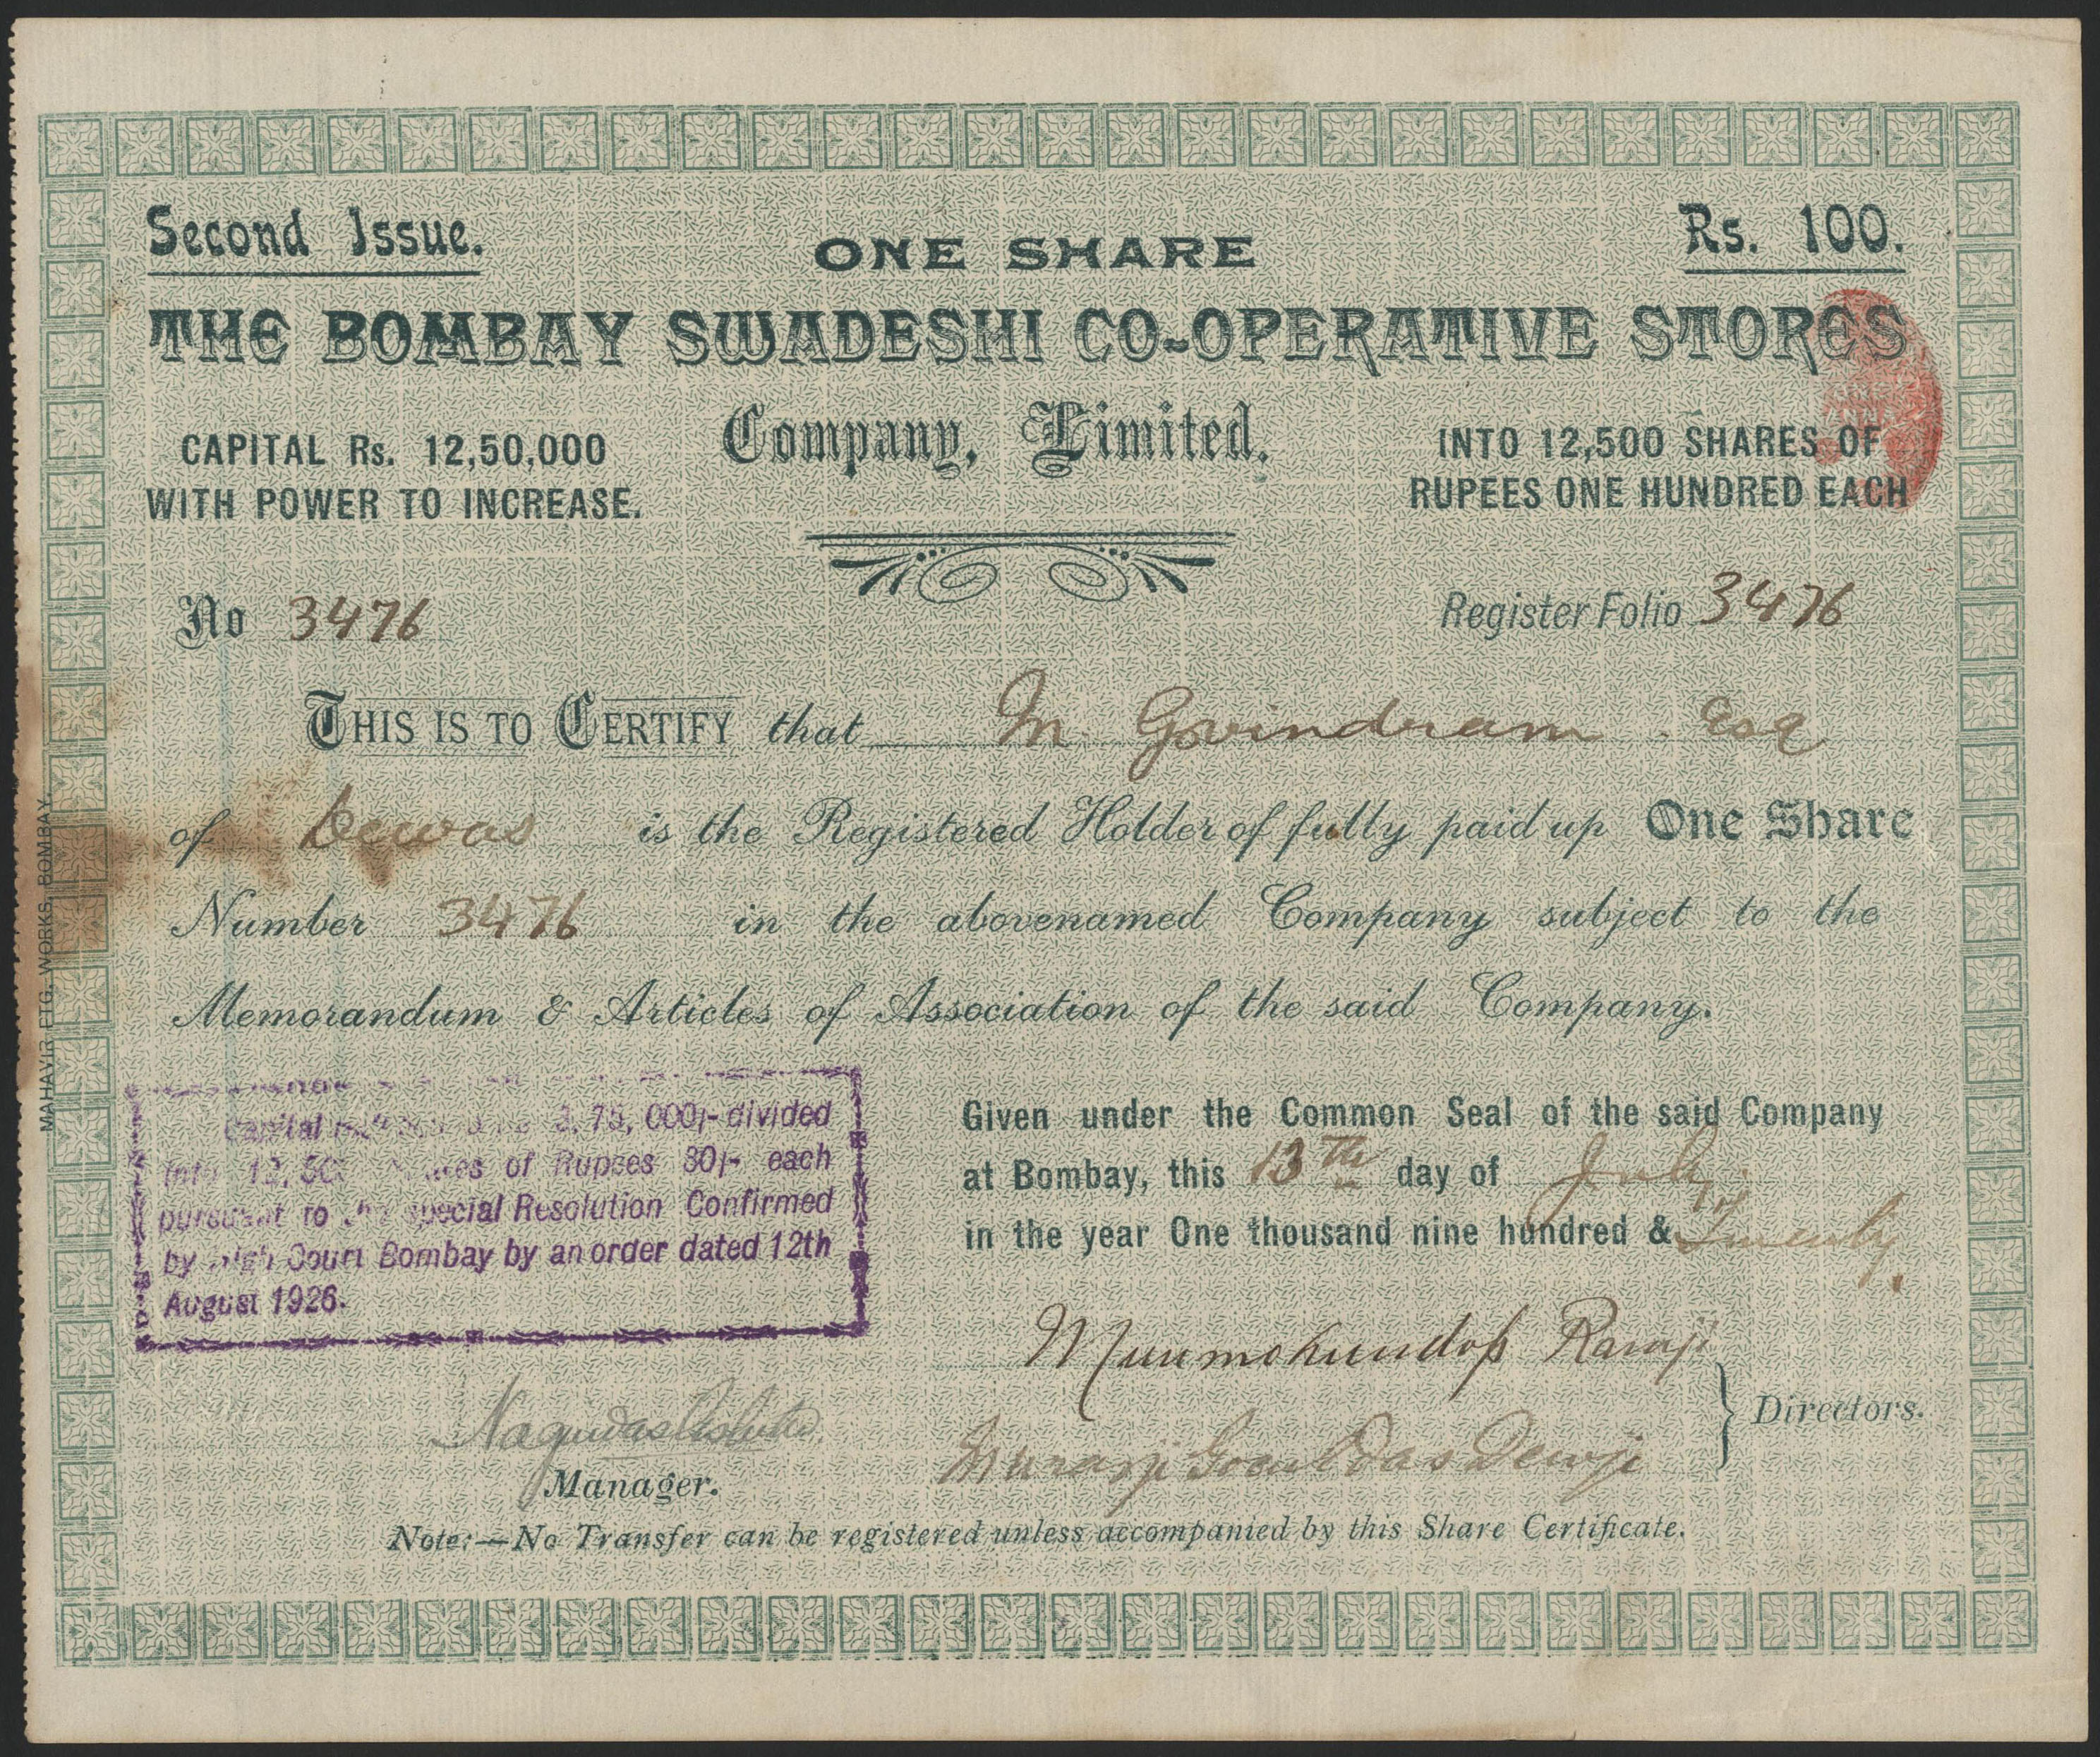 Second Issue.
ONE SHARE
Rs. 100.
THE BOMBAY SWADESHI CO-OPERATIVE STORES
Company, Limited.
CAPITAL Rs. 12,50,000
WITH POWER TO INCREASE.
INTO 12,500 SHARES OF
RUPEES ONE HUNDRED EACH
ANNA
No 3476
Register Folio 3476
THIS IS TO CERTIFY that M. Govindram Esq
of Dewas is the Registered Holder of fully paid up One Share
Number 3476 in the abovenamed Company subject to the
Memorandum & Articles of Association of the said Company.
Capital 3,75,000/- divided
into 12,500 of Rupees 30/- each
pursuant to the special Resolution Confirmed
by High Court Bombay by an order dated 12th
August 1926.
Given under the Common Seal of the said Company
at Bombay, this 13th day of July
in the year One thousand nine hundred & Twenty.
Directors.
Manager.
Note:—No Transfer can be registered unless accompanied by this Share Certificate.
MAHAVIR PTG. WORKS, BOMBAY.